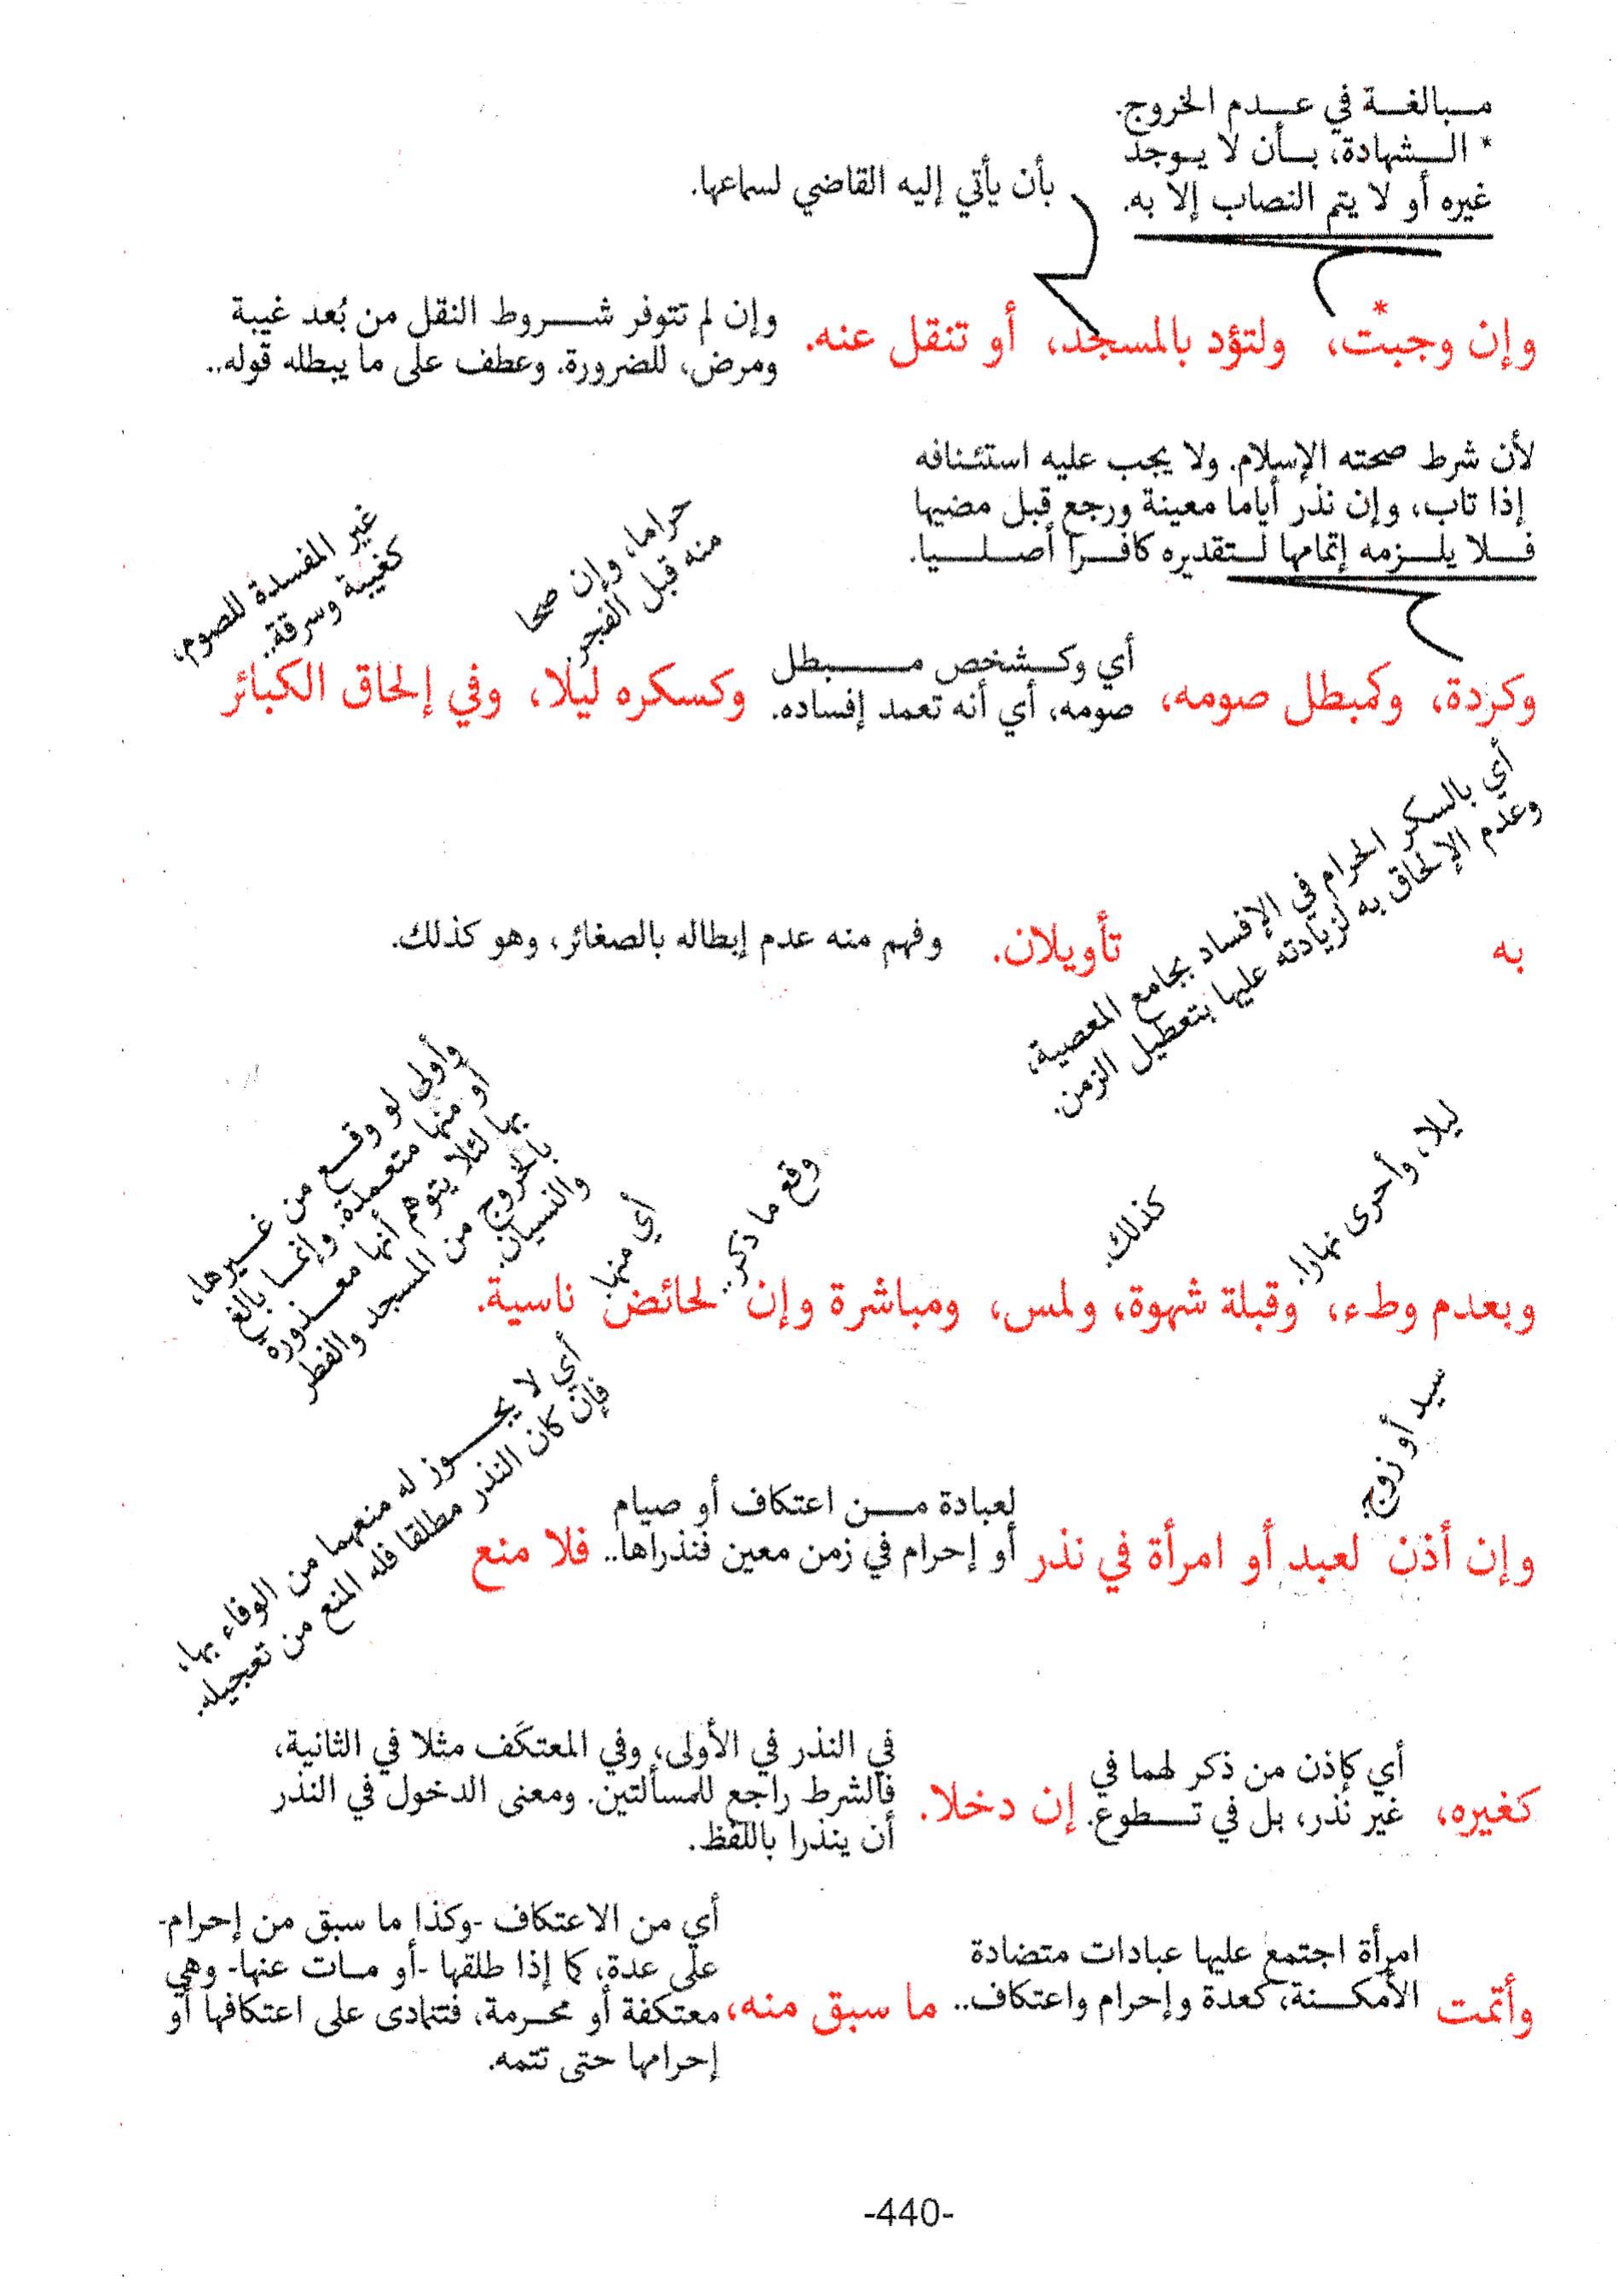 مبالغة في عدم الخروج.
* الشهادة، بأن لا يوجد
غيره أو لا يتم النصاب إلا به.
بأن يأتي إليه القاضي لسماعها.
وإن وجبت*، ولتؤد بالمسجد، أو تنقل عنه.
وإن لم تتوفر شروط النقل من بُعد غيبة
ومرض، للضرورة. وعطف على ما يبطله قوله..
لأن شرط صحته الإسلام. ولا يجب عليه استئنافه
إذا تاب، وإن نذر أياما معينة ورجع قبل مضيها
فلا يلزمه إتمامها لتقديره كافرا أصليا.
وكردة، وكمبطل صومه،
أي وكشخص مبطل
صومه، أي أنه تعمد إفساده.
وكسكره ليلا،
حراما، وإن صحا
منه قبل الفجر.
وفي إلحاق الكبائر
غير المفسدة للصوم،
كغيبة وسرقة..
به
أي بالسكر الحرام في الإفساد بجامع المعصية،
وعدم الإلحاق به لزيادته عليها بتعطيل الزمن.
تأويلان.
وفهم منه عدم إبطاله بالصغائر، وهو كذلك.
وبعدم وطء،
ليلا، وأحرى نهارا.
وقبلة شهوة، ولمس، ومباشرة
كذلك.
وإن
وقع ما ذكر..
لحائض
أي منها.
ناسية.
وأولى لو وقع من غيرها،
أو منها متعمدة. وإنما بالغ
بها لئلا يتوهم أنها معذورة
بالخروج من المسجد والفطر
والنسيان.
وإن أذن
سيد أو زوج.
لعبد أو امرأة في نذر
لعبادة من اعتكاف أو صيام
أو إحرام في زمن معين فنذراها..
فلا منع
أي لا يجوز له منعهما من الوفاء بها،
فإن كان النذر مطلقا فله المنع من تعجيله.
كغيره،
أي كإذن من ذكر لهما في
غير نذر، بل في تطوع.
إن دخلا.
في النذر في الأولى، وفي المعتكَف مثلا في الثانية،
فالشرط راجع للمسألتين. ومعنى الدخول في النذر
أن ينذرا باللفظ.
وأتمت
امرأة اجتمع عليها عبادات متضادة
الأمكنة، كعدة وإحرام واعتكاف..
ما سبق منه،
أي من الاعتكاف -وكذا ما سبق من إحرام-
على عدة، كما إذا طلقها -أو مات عنها- وهي
معتكفة أو محرمة، فتتمادى على اعتكافها أو
إحرامها حتى تتمه.
-440-